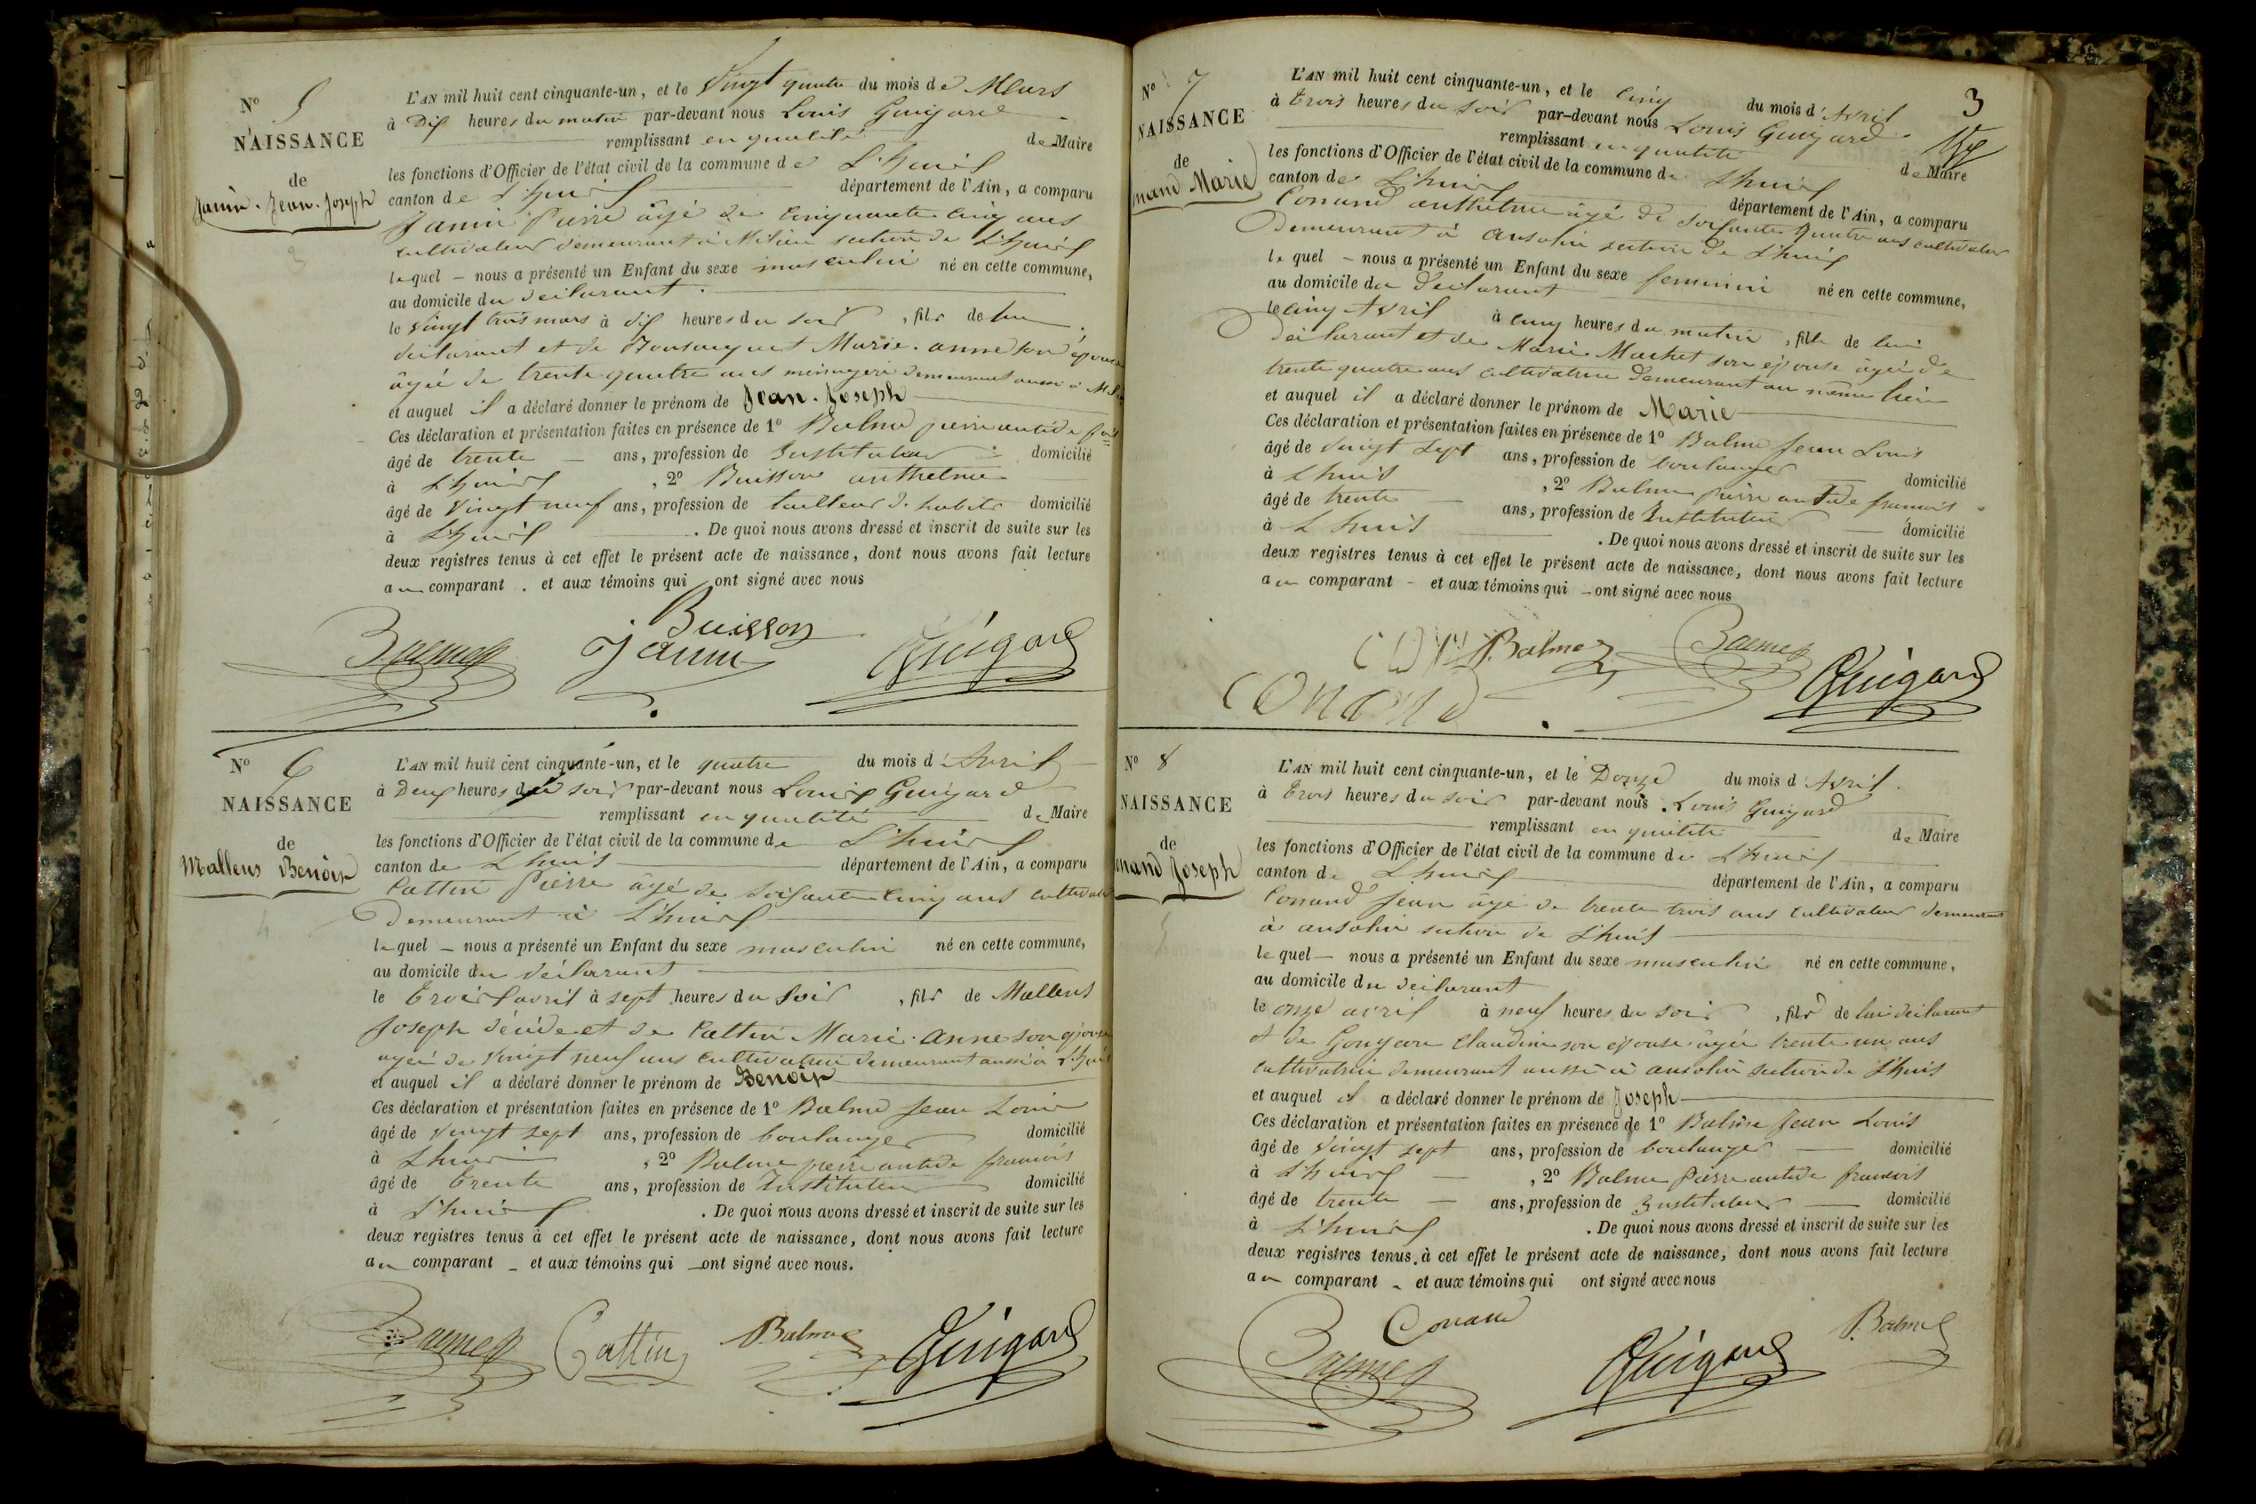 N° 5
NAISSANCE
de
Janin. Jean. Joseph
L'AN mil huit cent cinquante-un, et le Vingt quatre du mois de Mars
à Dix heures du matin par-devant nous Louis Guigard
remplissant en qualité de Maire
les fonctions d'Officier de l'état civil de la commune de L'huis
canton de L'huis département de l'Ain, a comparu
Janin Pierre âgé de Cinquante cinq ans
cultivateur demeurant à section de L'huis
lequel nous a présenté un Enfant du sexe masculin né en cette commune,
au domicile du déclarant
le Vingt trois mars à dix heures du soir, fils de lui
déclarant et de Marie. anne son épouse
âgée de trente quatre ans ménagère demeurant aussi à
et auquel il a déclaré donner le prénom de Jean. Joseph
Ces déclaration et présentation faites en présence de 1° Balme pierre antide
âgé de trente ans, profession de Instituteur domicilié
à L'huis, 2° Buisson anthelme
âgé de Vingt neuf ans, profession de tailleur d. habits domicilié
à L'huis. De quoi nous avons dressé et inscrit de suite sur les
deux registres tenus à cet effet le présent acte de naissance, dont nous avons fait lecture
au comparant. et aux témoins qui ont signé avec nous
Buisson
Balme Janin Guigard
N° 6
NAISSANCE
de
Mallens Benoir
L'AN mil huit cent cinquante-un, et le quatre du mois d'Avril
à Deux heures du soir par-devant nous Louis Guigard
remplissant en qualité de Maire
les fonctions d'Officier de l'état civil de la commune de L'huis
canton de L'huis département de l'Ain, a comparu
Cattin Pierre âgé de soixante cinq ans cultivateur
demeurant à L'huis
lequel nous a présenté un Enfant du sexe masculin né en cette commune,
au domicile du déclarant
le trois avril à sept heures du soir, fils de Mallens
Joseph décédé et de Cattin Marie. anne son épouse
agée de Vingt neuf ans cultivatrice demeurant aussi à L'huis
et auquel il a déclaré donner le prénom de Benoir
Ces déclaration et présentation faites en présence de 1° Balme Jean Louis
âgé de Vingt sept ans, profession de boulanger domicilié
à Lhuis, 2° Balme pierre antide francois
âgé de trente ans, profession de Instituteur domicilié
à L'huis. De quoi nous avons dressé et inscrit de suite sur les
deux registres tenus à cet effet le présent acte de naissance, dont nous avons fait lecture
au comparant et aux témoins qui ont signé avec nous.
Balme Cattin Balme Guigard
3
N° 7
NAISSANCE
de
nand Marie
L'AN mil huit cent cinquante-un, et le cinq du mois d'Avril
à trois heures du soir par-devant nous Louis Guigard
remplissant en qualité de Maire
les fonctions d'Officier de l'état civil de la commune de Lhuis
canton de L'huis département de l'Ain, a comparu
Conand anthelme âgé de soixante quatre ans cultivateur
Demeurant à ansolin section de L'huis
lequel nous a présenté un Enfant du sexe feminin né en cette commune,
au domicile du déclarant
le cinq Avril à cinq heures du matin, fille de lui
déclarant et de Marie Machet son épouse âgée de
trente quatre ans cultivatrice demeurant au même lieu
et auquel il a déclaré donner le prénom de Marie
Ces déclaration et présentation faites en présence de 1° Balme Jean Louis
âgé de Vingt sept ans, profession de boulanger domicilié
à Lhuis, 2° Balme pierre antide francois
âgé de trente ans, profession de Instituteur domicilié
à Lhuis. De quoi nous avons dressé et inscrit de suite sur les
deux registres tenus à cet effet le présent acte de naissance, dont nous avons fait lecture
au comparant et aux témoins qui ont signé avec nous
Balme Balme Guigard
Conand
N° 8
NAISSANCE
de
nand Joseph
L'AN mil huit cent cinquante-un, et le Douze du mois d'Avril
à trois heures du soir par-devant nous Louis Guigard
remplissant en qualité de Maire
les fonctions d'Officier de l'état civil de la commune de L'huis
canton de L'huis département de l'Ain, a comparu
Conand Jean âgé de trente trois ans cultivateur demeurant
à ansolin section de L'huis
lequel nous a présenté un Enfant du sexe masculin né en cette commune,
au domicile du déclarant
le onze avril à neuf heures du soir, fils de lui déclarant
et de Claudine son épouse âgée trente un ans
cultivatrice demeurant aussi à ansolin section de L'huis
et auquel il a déclaré donner le prénom de Joseph
Ces déclaration et présentation faites en présence de 1° Balme Jean Louis
âgé de Vingt sept ans, profession de boulanger domicilié
à L'huis, 2° Balme Pierre antide francois
âgé de trente ans, profession de Instituteur domicilié
à L'huis. De quoi nous avons dressé et inscrit de suite sur les
deux registres tenus à cet effet le présent acte de naissance, dont nous avons fait lecture
au comparant et aux témoins qui ont signé avec nous
Balme Conand Guigard Balme